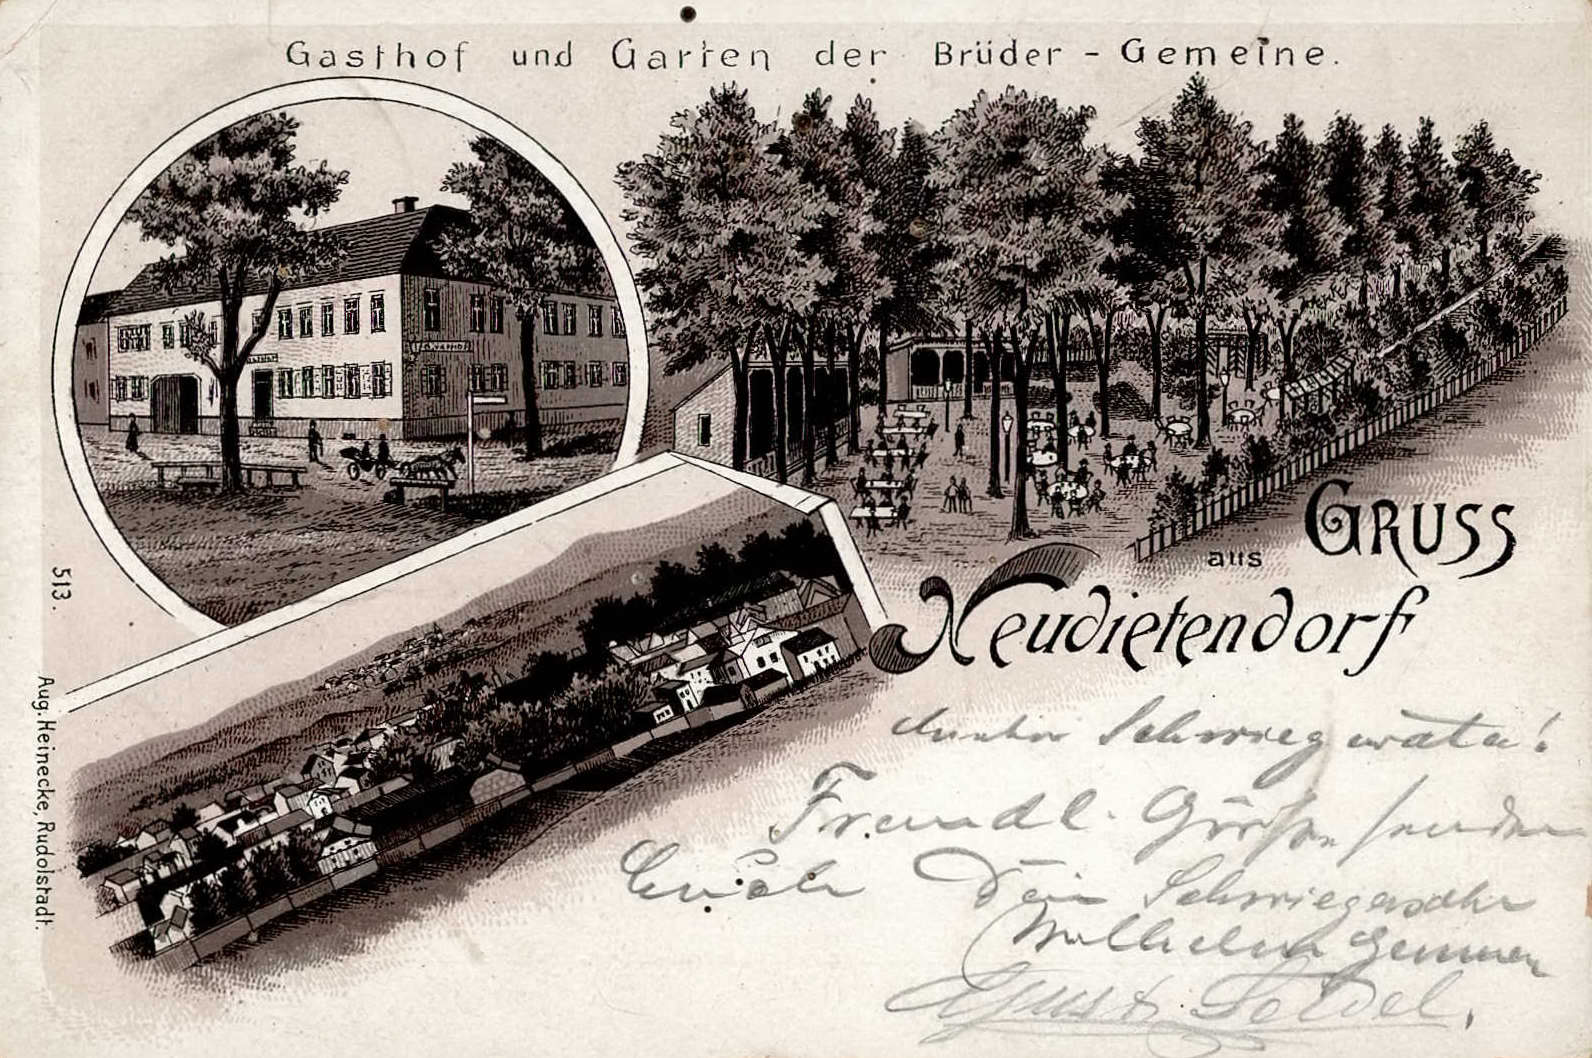 Gasthof und Garten der Brüder - Gemeine.
GASTHOF
GRUSS
aus
Neudietendorf
513.
Aug. Heinecke, Rudolstadt.
Schwiegervater!
Freundl. Grüße senden
Euch Dein Schwiegersohn
Wilhelm
August Seidel.